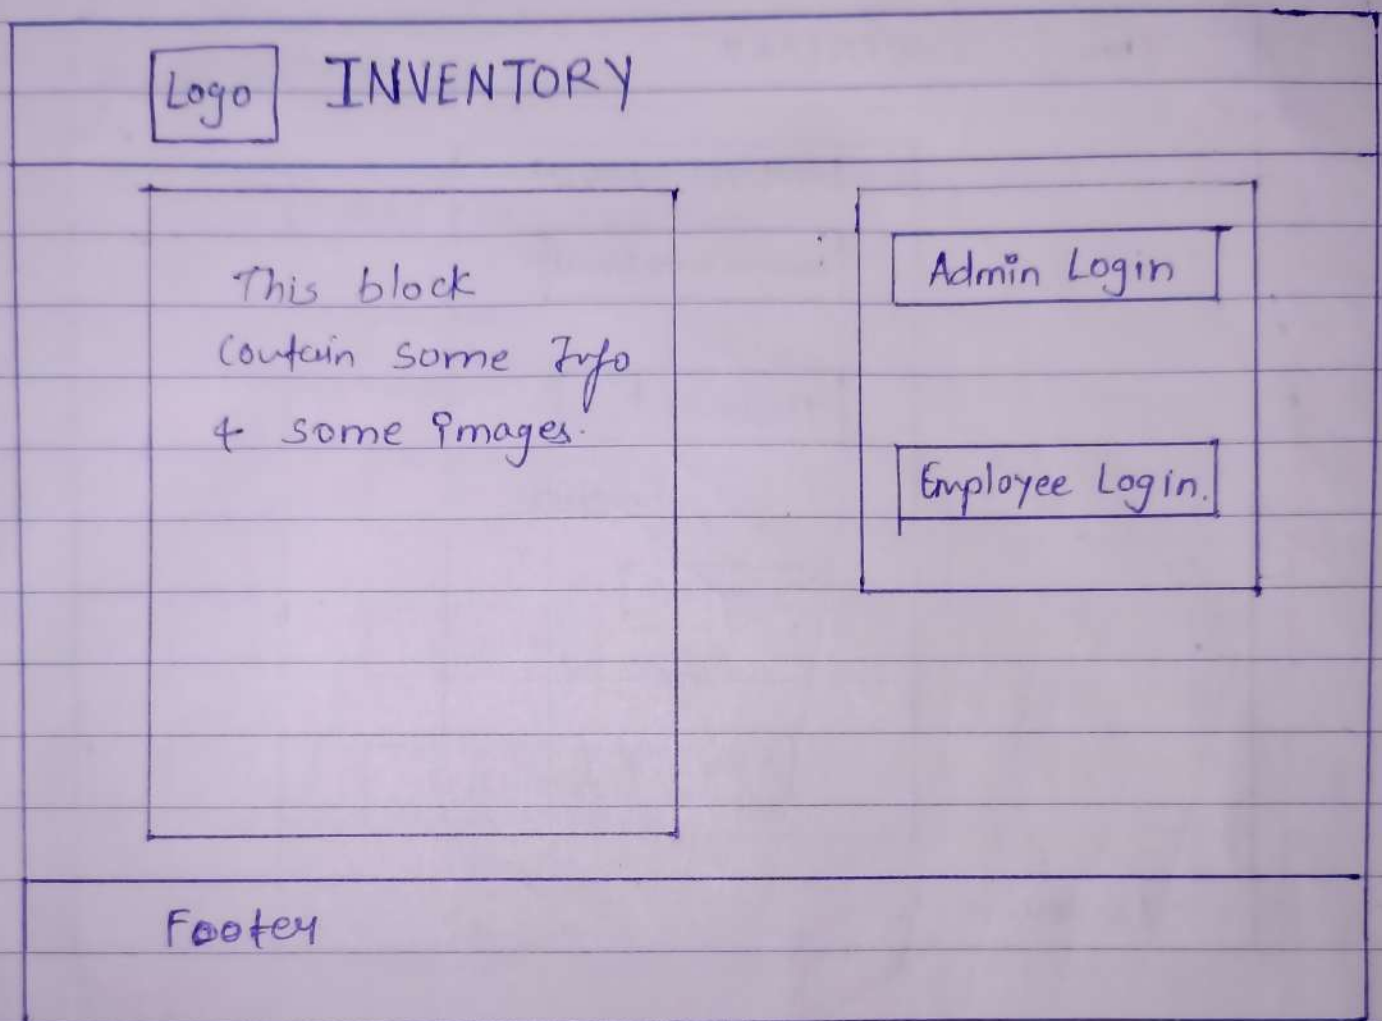 Logo INVENTORY
This block
Contain some Info
& some images.
Admin Login
Employee Login.
Footer